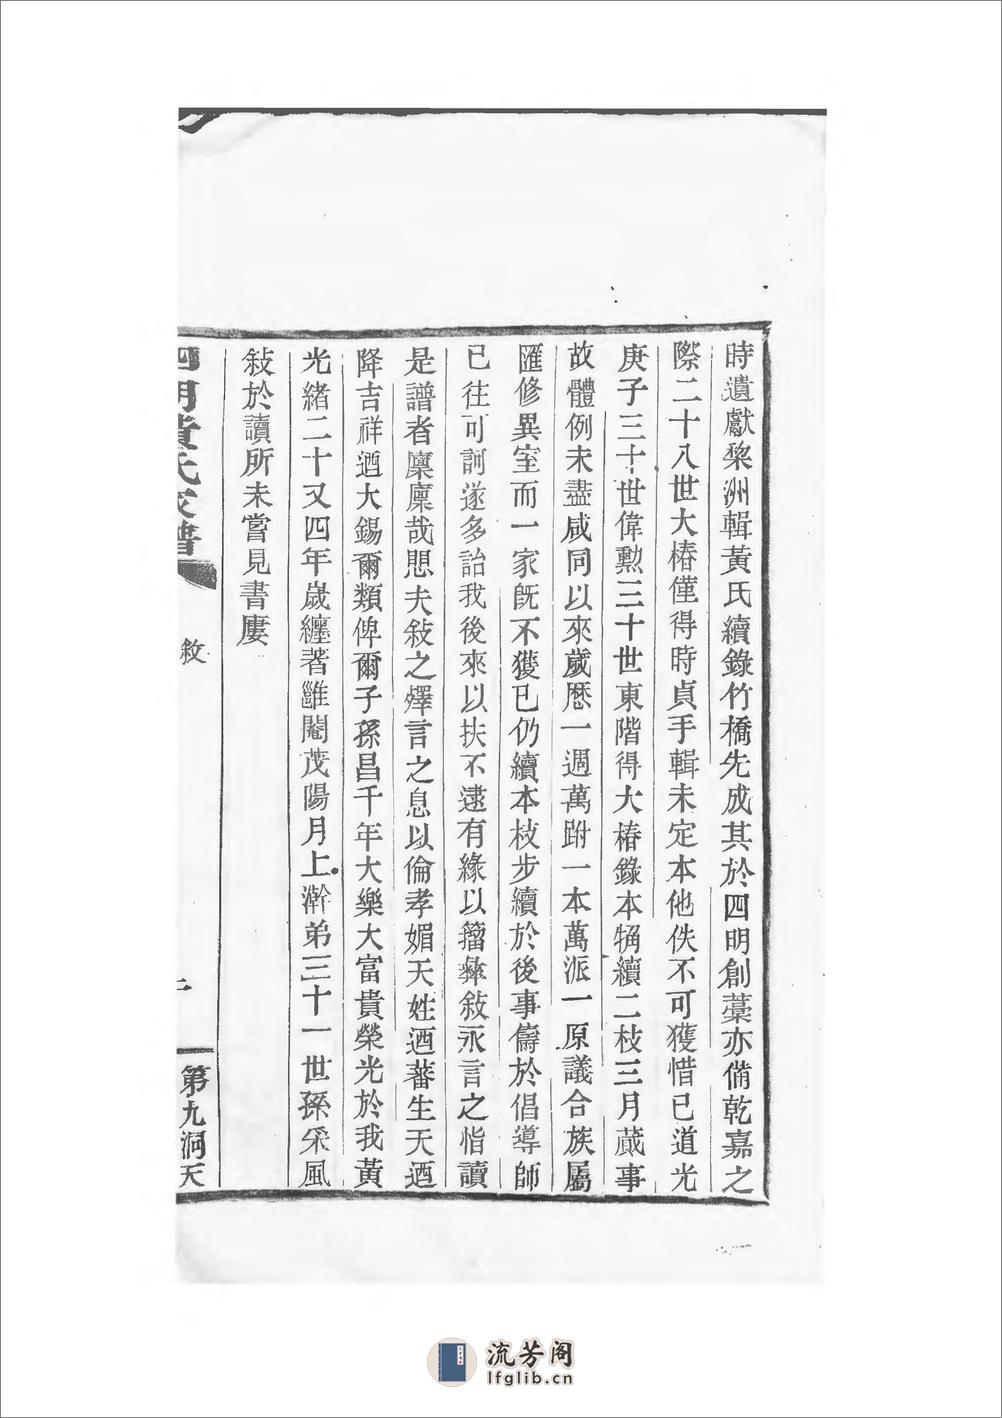 時遺獻棃洲輯黃氏續錄竹橋先成其於四明創藁亦備乾嘉之
際二十八世大椿僅得時貞手輯未定本他佚不可獲惜已道光
庚子三十世偉勲三十世東階得大椿錄本犕續二枝三月蕆事
故體例未盡咸同以來歲厯一週萬跗一本萬派一原議合族屬
匯修異室而一家旣不獲已仍續本枝步續於後事儔於倡導師
已往可訶遂多詒我後來以扶不逮有緣以籀彝敍永言之恉讀
是譜者廩廩哉愳夫敍之燡言之息以倫孝媚天姓迺蕃生天迺
降吉祥迺大錫爾類俾爾子孫昌千年大樂大富貴榮光於我黃
光緒二十又四年歲纏著雝閹茂陽月上澣弟三十一世孫采風
敍於讀所未嘗見書廔
四明黃氏家譜
敘
二
第九洞天
流芳阁
lfglib.cn